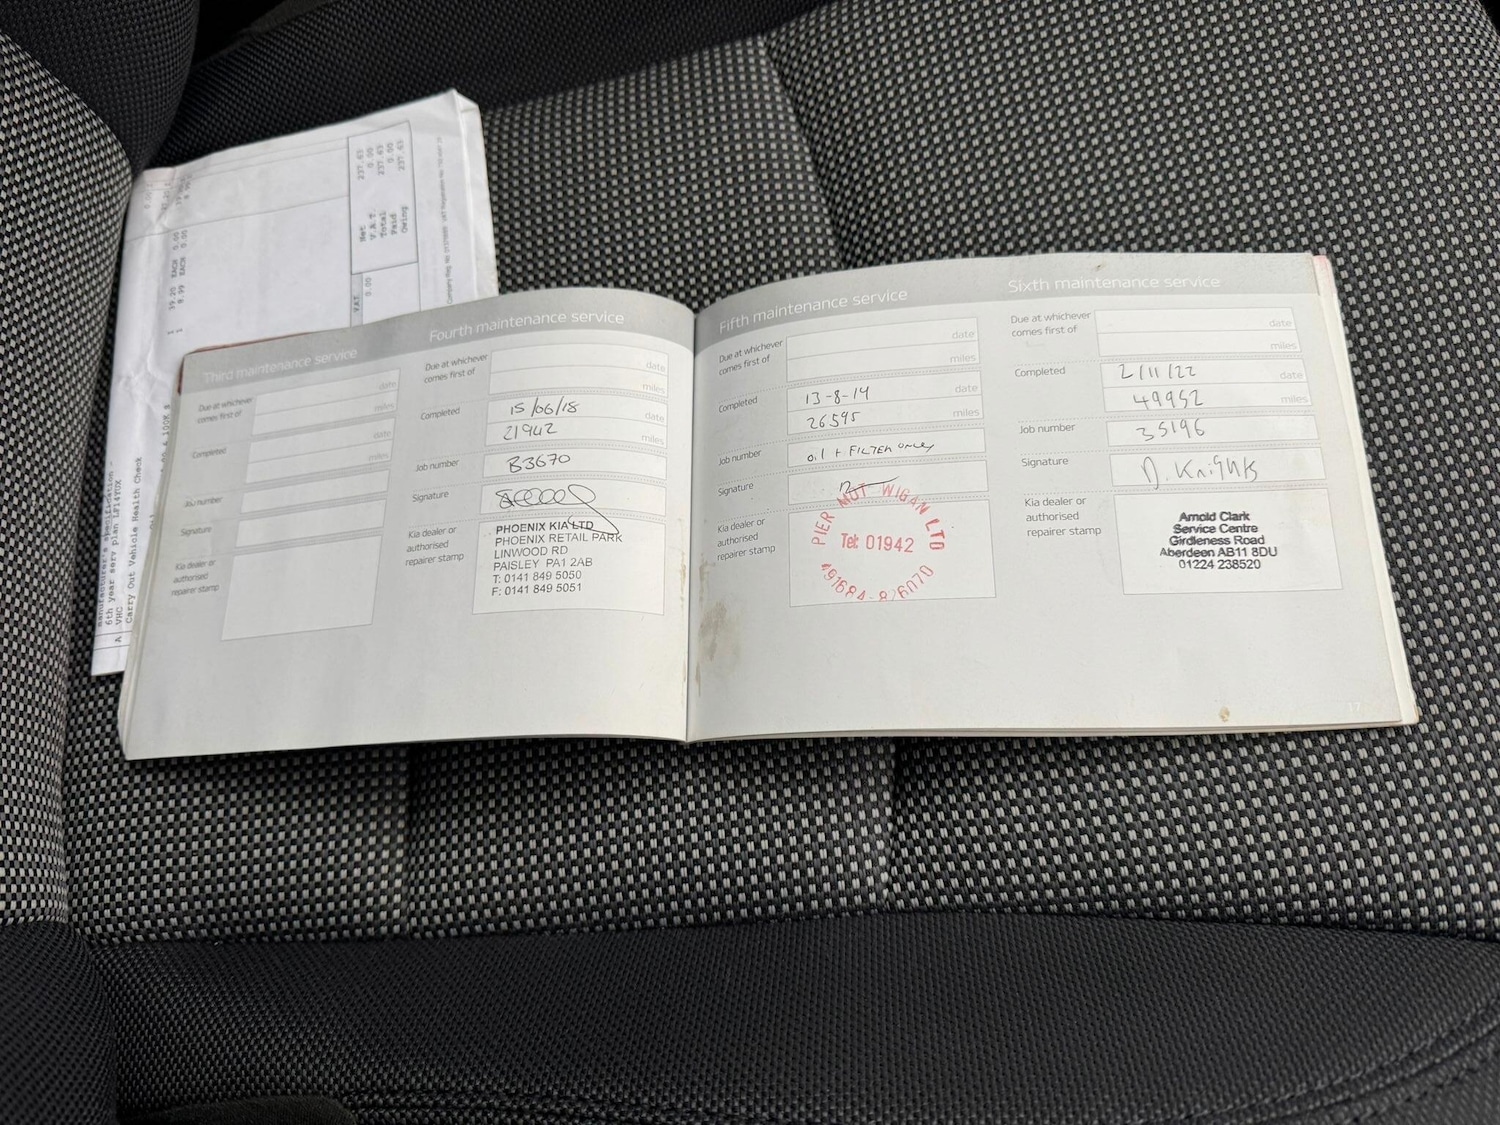 Third maintenance service
Due at whichever
comes first of
date
miles
Completed
date
miles
Job number
Signature
Kia dealer or
authorised
repairer stamp
Fourth maintenance service
Due at whichever
comes first of
date
miles
Completed
15/06/18
date
21942
miles
Job number
B3670
Signature
Kia dealer or
authorised
repairer stamp
PHOENIX KIA LTD
PHOENIX RETAIL PARK
LINWOOD RD
PAISLEY PA1 2AB
T: 0141 849 5050
F: 0141 849 5051
Fifth maintenance service
Due at whichever
comes first of
date
miles
Completed
13-8-19
date
26595
miles
Job number
oil + FILTER ONLY
Signature
Kia dealer or
authorised
repairer stamp
PIER MOT WIGAN LTD
Tel: 01942
Sixth maintenance service
Due at whichever
comes first of
date
miles
Completed
2/11/22
date
49952
miles
Job number
35196
Signature
Kia dealer or
authorised
repairer stamp
Arnold Clark
Service Centre
Girdleness Road
Aberdeen AB11 8DU
01224 238520
17
manufacturer's specification
6th year serv plan LF14YUX
A VHC
Carry Out Vehicle Health Check
1 39.20 EACH 0.00
1 8.99 EACH 0.00
VAT
0.00
Net 237.63
V.A.T. 0.00
Total 237.63
Paid 0.00
Owing 237.63